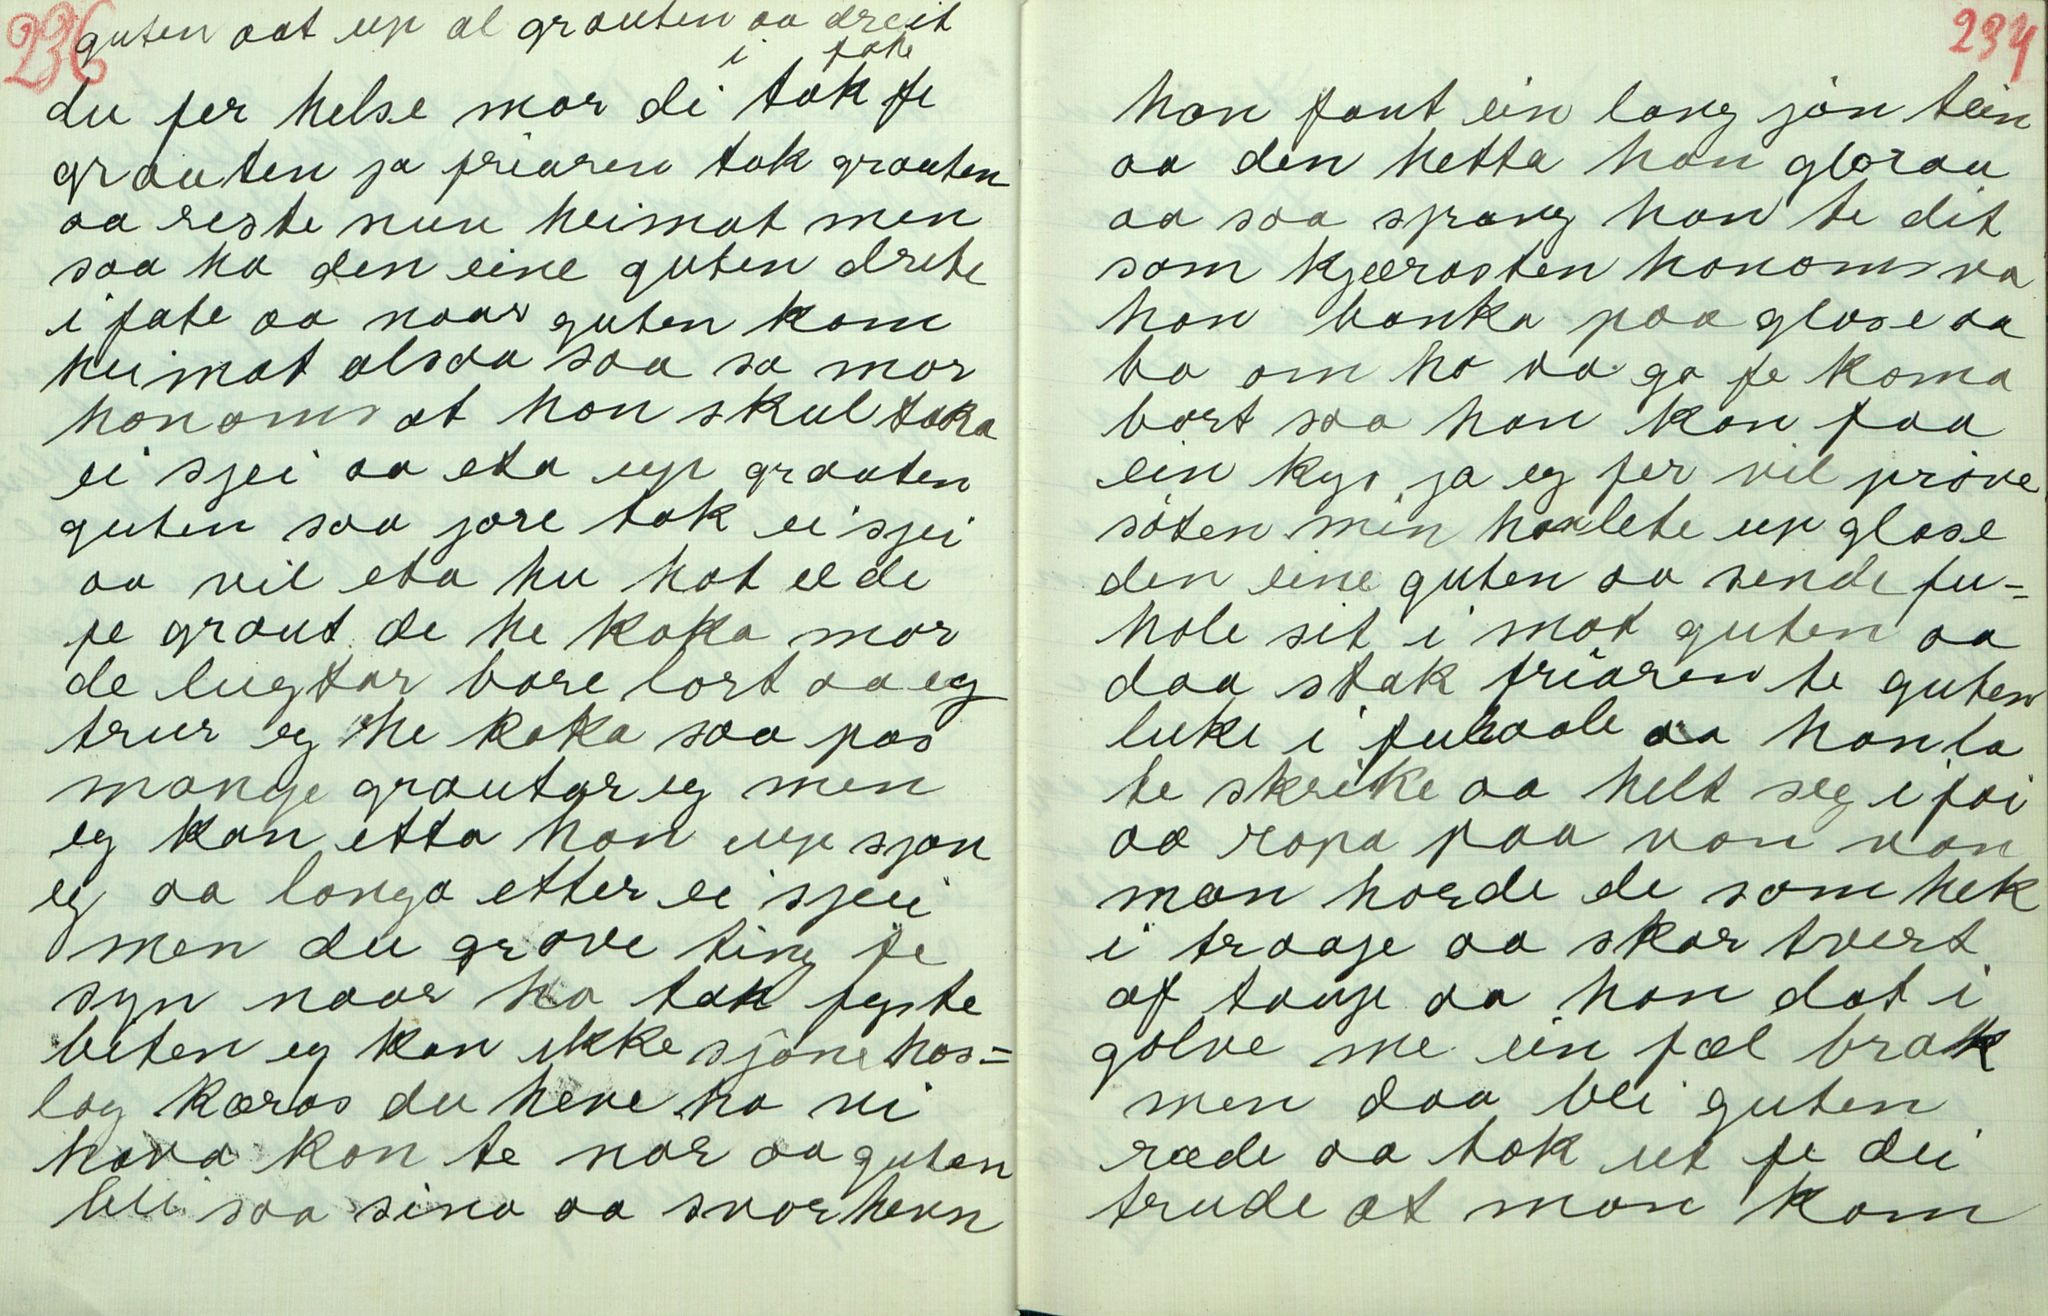 236
guten aat up al grauten aa dreit
i fate
du fer helse mor di tak fe
grauten ja friaren tok grauten
aa reste nuu heimat men
saa ha den eine guten drete
i fate aa naar guten kom
heimat alsaa saa sa mor
honoms at han skul taka
ei sjei aa eta up grauten
guten saa jore tok ei sjei
aa vil eta hu hat el de
fe graut de he koka mor
de lugtar bare lort aa eg
trur eg he koka saa pas
mange grautar eg men
eg kan etta han up sjøn
eg aa langa etter ei sjeii
men du grøve ting fe
syn naar ho tok fyste
beten eg kan ikke sjøne hos=
lag kæras du heve ho vi
hava kan te nar aa guten
blei saa sina aa svor hevn
234
han fant ein lang jøn tein
aa den hetta han gloraa
aa saa sprang han te dit
som kjærasten honoms va
han banka paa glase aa
ba om ho va go fe koma
bort saa han kan faa
ein kys ja eg fer vil prøve
søten min han lete up glase
den eine guten aa vende fu-
hole sit i mot guten aa
daa stak friaren te guten
luke i fuhaale aa han la
te skrike aa helt seg i foi
aa ropa paa van van
man hørde de som hek
i traaje aa skar tvert
af tauje aa han dat i
golve me ein fæl brak
men daa blei guten
ræde aa tok ut fe dei
trude at man kom